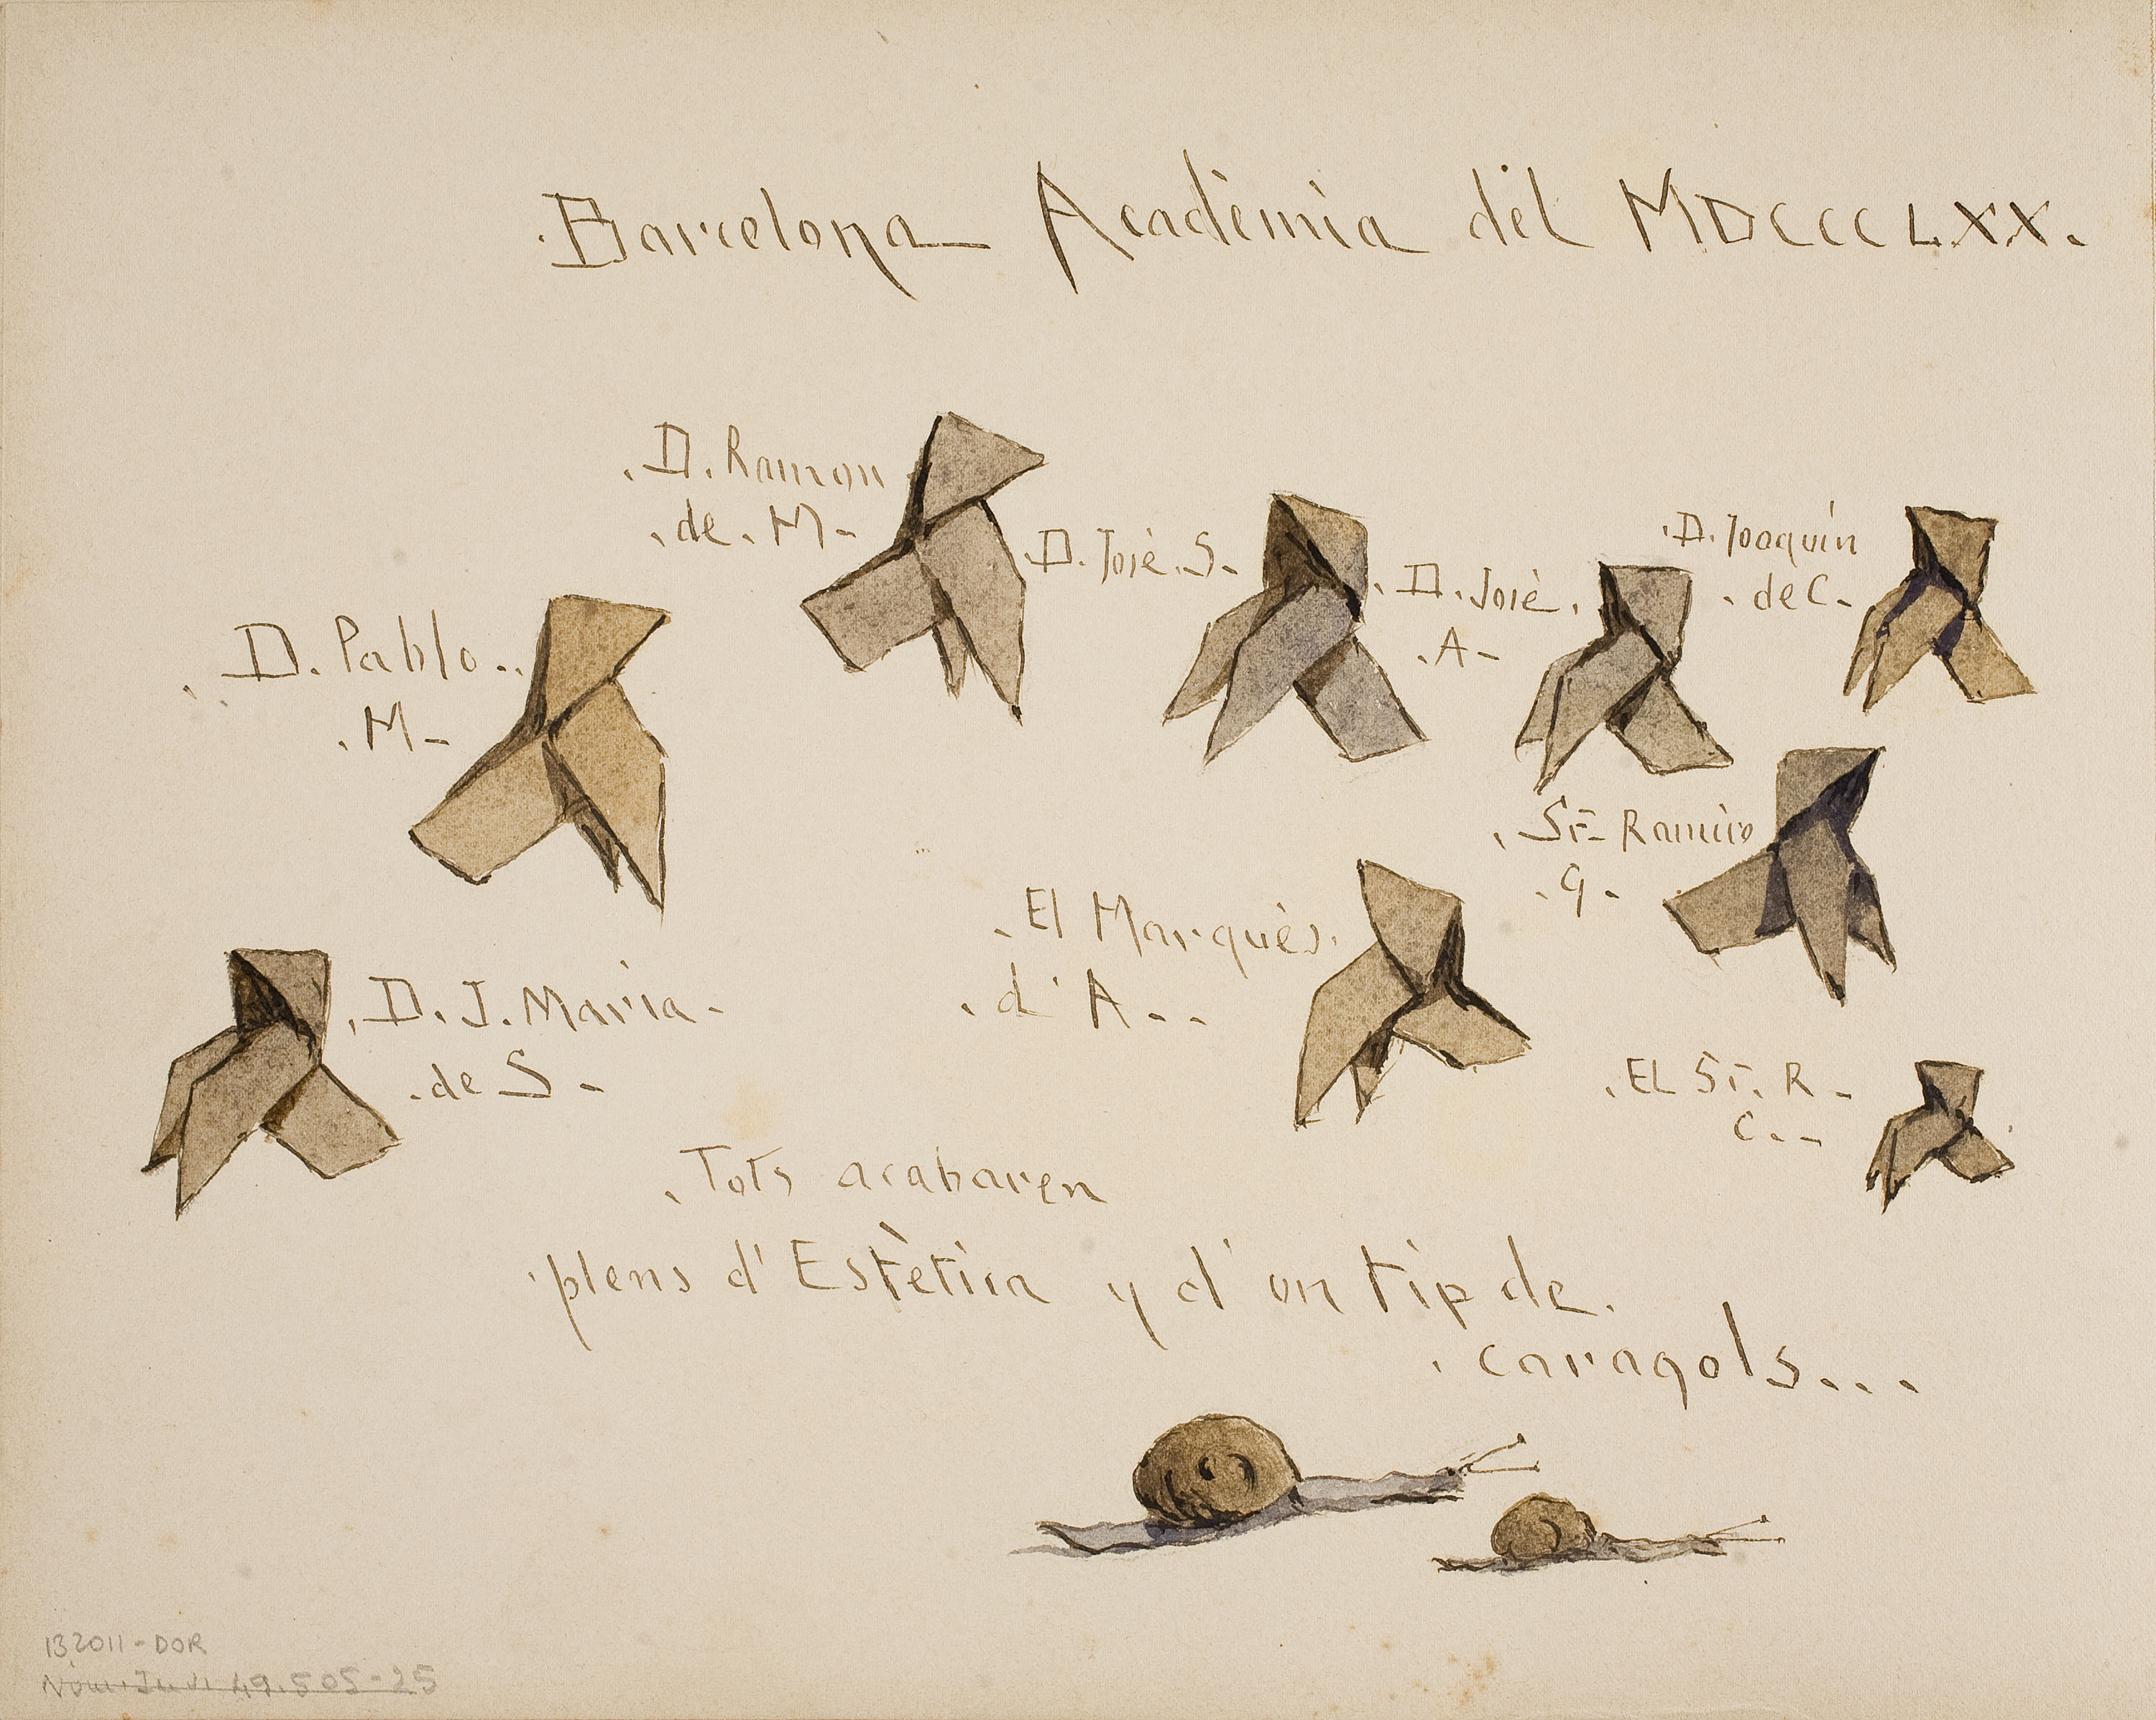 .Barcelona Acadèmia del MDCCCLXX.
.D. Ramon
.de. M-
.D. José. S-
.D. José.
.A-
.D. Joaquin
.de C-
.D. Pablo..
.M-
.Sr. Ramiro
.G-
.El Marquès.
.d'A..
.D. J. Maria-
.de S-
.EL Sr. R-
C..
.Tots acabaren
plens d'Estètica y d'un tip de.
.caragols...
13,2011-DOR
Núm. Inv. 49.505-25